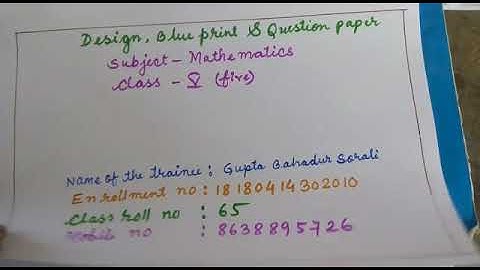 Design, Blue print & Question paper
Subject - Mathematics
Class - V (five)
Name of the trainee : Gupta Bahadur Sorali
Enrollment no : 18180414302010
Class roll no : 65
Mobile no : 8638895726